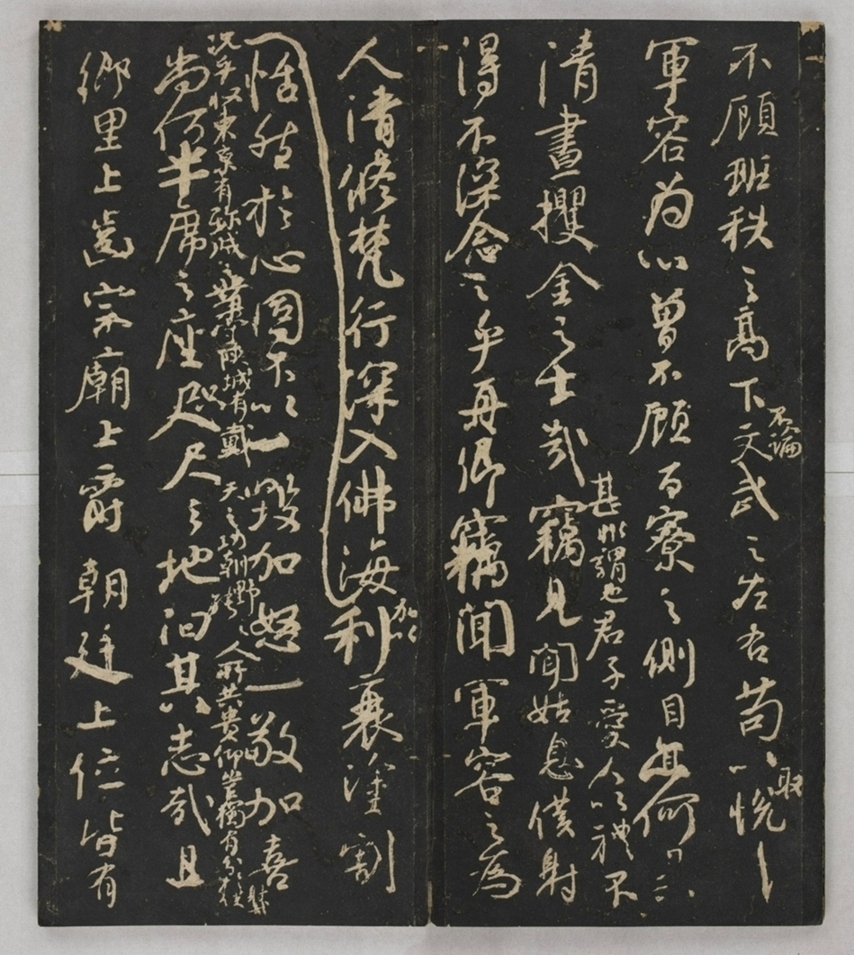 不顧班秩之高下不論文武之左右苟以取悅
軍容為心曾不顧百寮之側目亦何異
甚非謂也君子愛人以禮不
清晝攫金之士哉竊見聞姑息僕射
得不深念之乎真卿竊聞軍容之為
人清修梵行深入佛海加以利衰塗割
恬然於心固不以一毀加怒一敬加喜
況乎收東京有殄賊之業守陝城有戴天之功朝野之人所共貴仰豈獨有分於僕射
尚何半席之座咫尺之地汩其志哉且
鄉里上齒宗廟上爵朝廷上位皆有